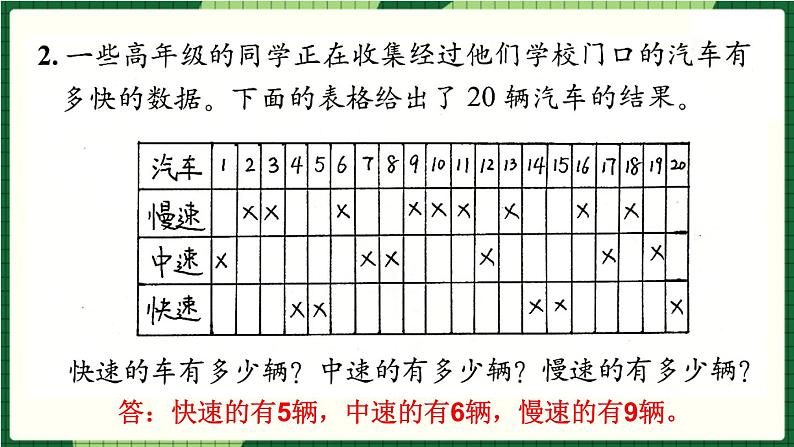 2. 一些高年级的同学正在收集经过他们学校门口的汽车有
多快的数据。下面的表格给出了 20 辆汽车的结果。
汽车 1 2 3 4 5 6 7 8 9 10 11 12 13 14 15 16 17 18 19 20
慢速 × × × × × × × × ×
中速 × × × × × ×
快速 × × × × ×
快速的车有多少辆？中速的有多少辆？慢速的有多少辆？
答：快速的有5辆，中速的有6辆，慢速的有9辆。